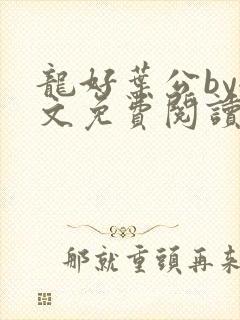 龍好葉公by
文免費閱讀
那就重頭再來